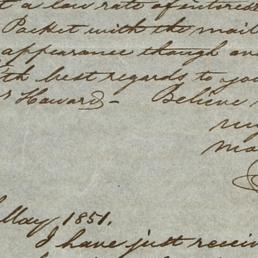 t a low rate of interes
Packet with the mail
appearance though an
th best regards to you
r Howard - Believe
my
mo
May, 1851.
I have just receiv